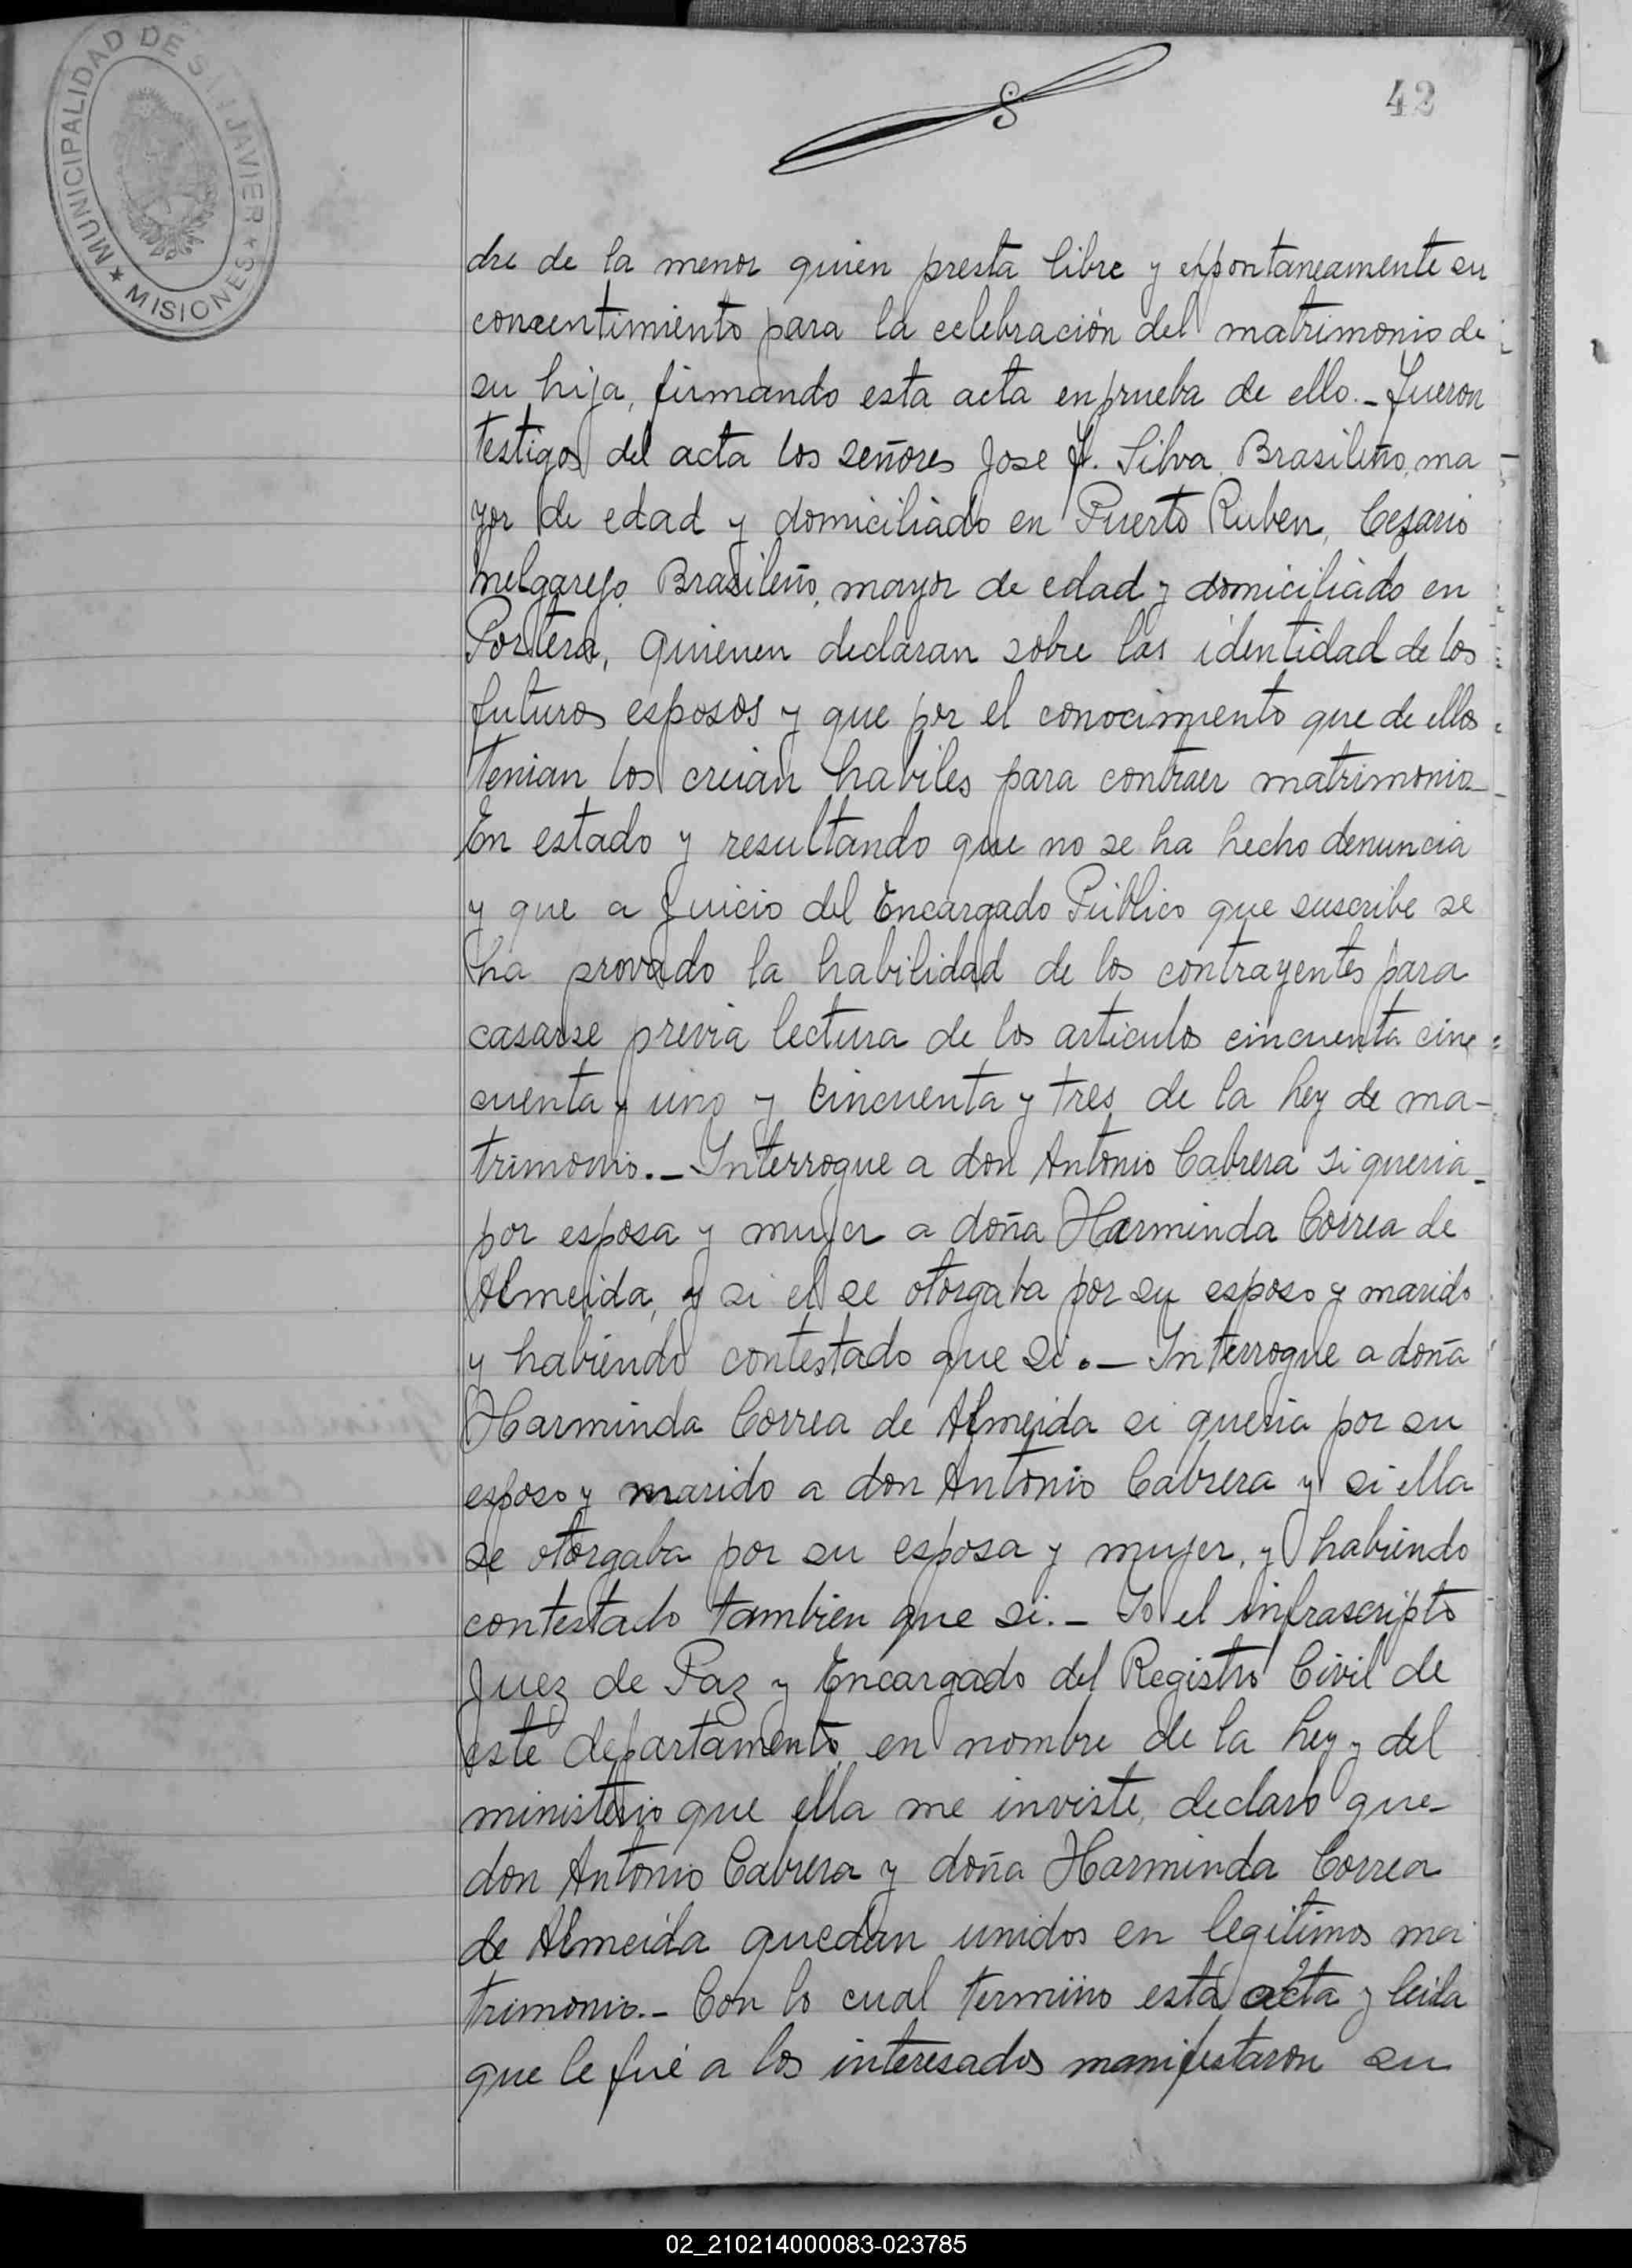 MUNICIPALIDAD DE SAN JAVIER
★ MISIONES ★
42
dre de la menor quien presta libre y esppontaneamente su
consentimiento para la celebración del matrimonio de
su hija, firmando esta acta en prueba de ello.- Fueron
testigos del acta los señores Jose F. Silva, Brasileño, ma
yor de edad y domiciliado en Puerto Ruben, Cesario
Melgarejo, Brasileño, mayor de edad y domiciliado en
Portera, quienen declaran sobre las identidad de los
futuros esposos y que por el conocimiento que de ellos
tenian los creian habiles para contraer matrimonio-
En estado y resultando que no se ha hecho denuncia
y que a Juicio del Encargado Público que suscribe se
ha provado la habilidad de los contrayentes para
casarse previa lectura de los articulos cincuenta cin=
cuenta y uno y cincuenta y tres de la Ley de ma-
trimonio.- Interrogue a don Antonio Cabrera si queria-
por esposa y mujer a doña Harminda Correa de
Almeida, y si el se otorgaba por su esposo y marido
y habiendo contestado que si.- Interrogue a doña
Harminda Correa de Almeida si queria por su
esposo y marido a don Antonio Cabrera y si ella
se otorgaba por su esposa y mujer, y habiendo
contestado tambien que si.- Yo el infrascripto
Juez de Paz y Encargado del Registro Civil de
este departamento, en nombre de la Ley y del
ministerio que ella me inviste, declaro que-
don Antonio Cabrera y doña Harminda Correa
de Almeida quedan unidos en legitimos ma
trimonio.- Con lo cual termino esta acta y leida
que le fué a los interesados manifestaron su
02_210214000083-023785